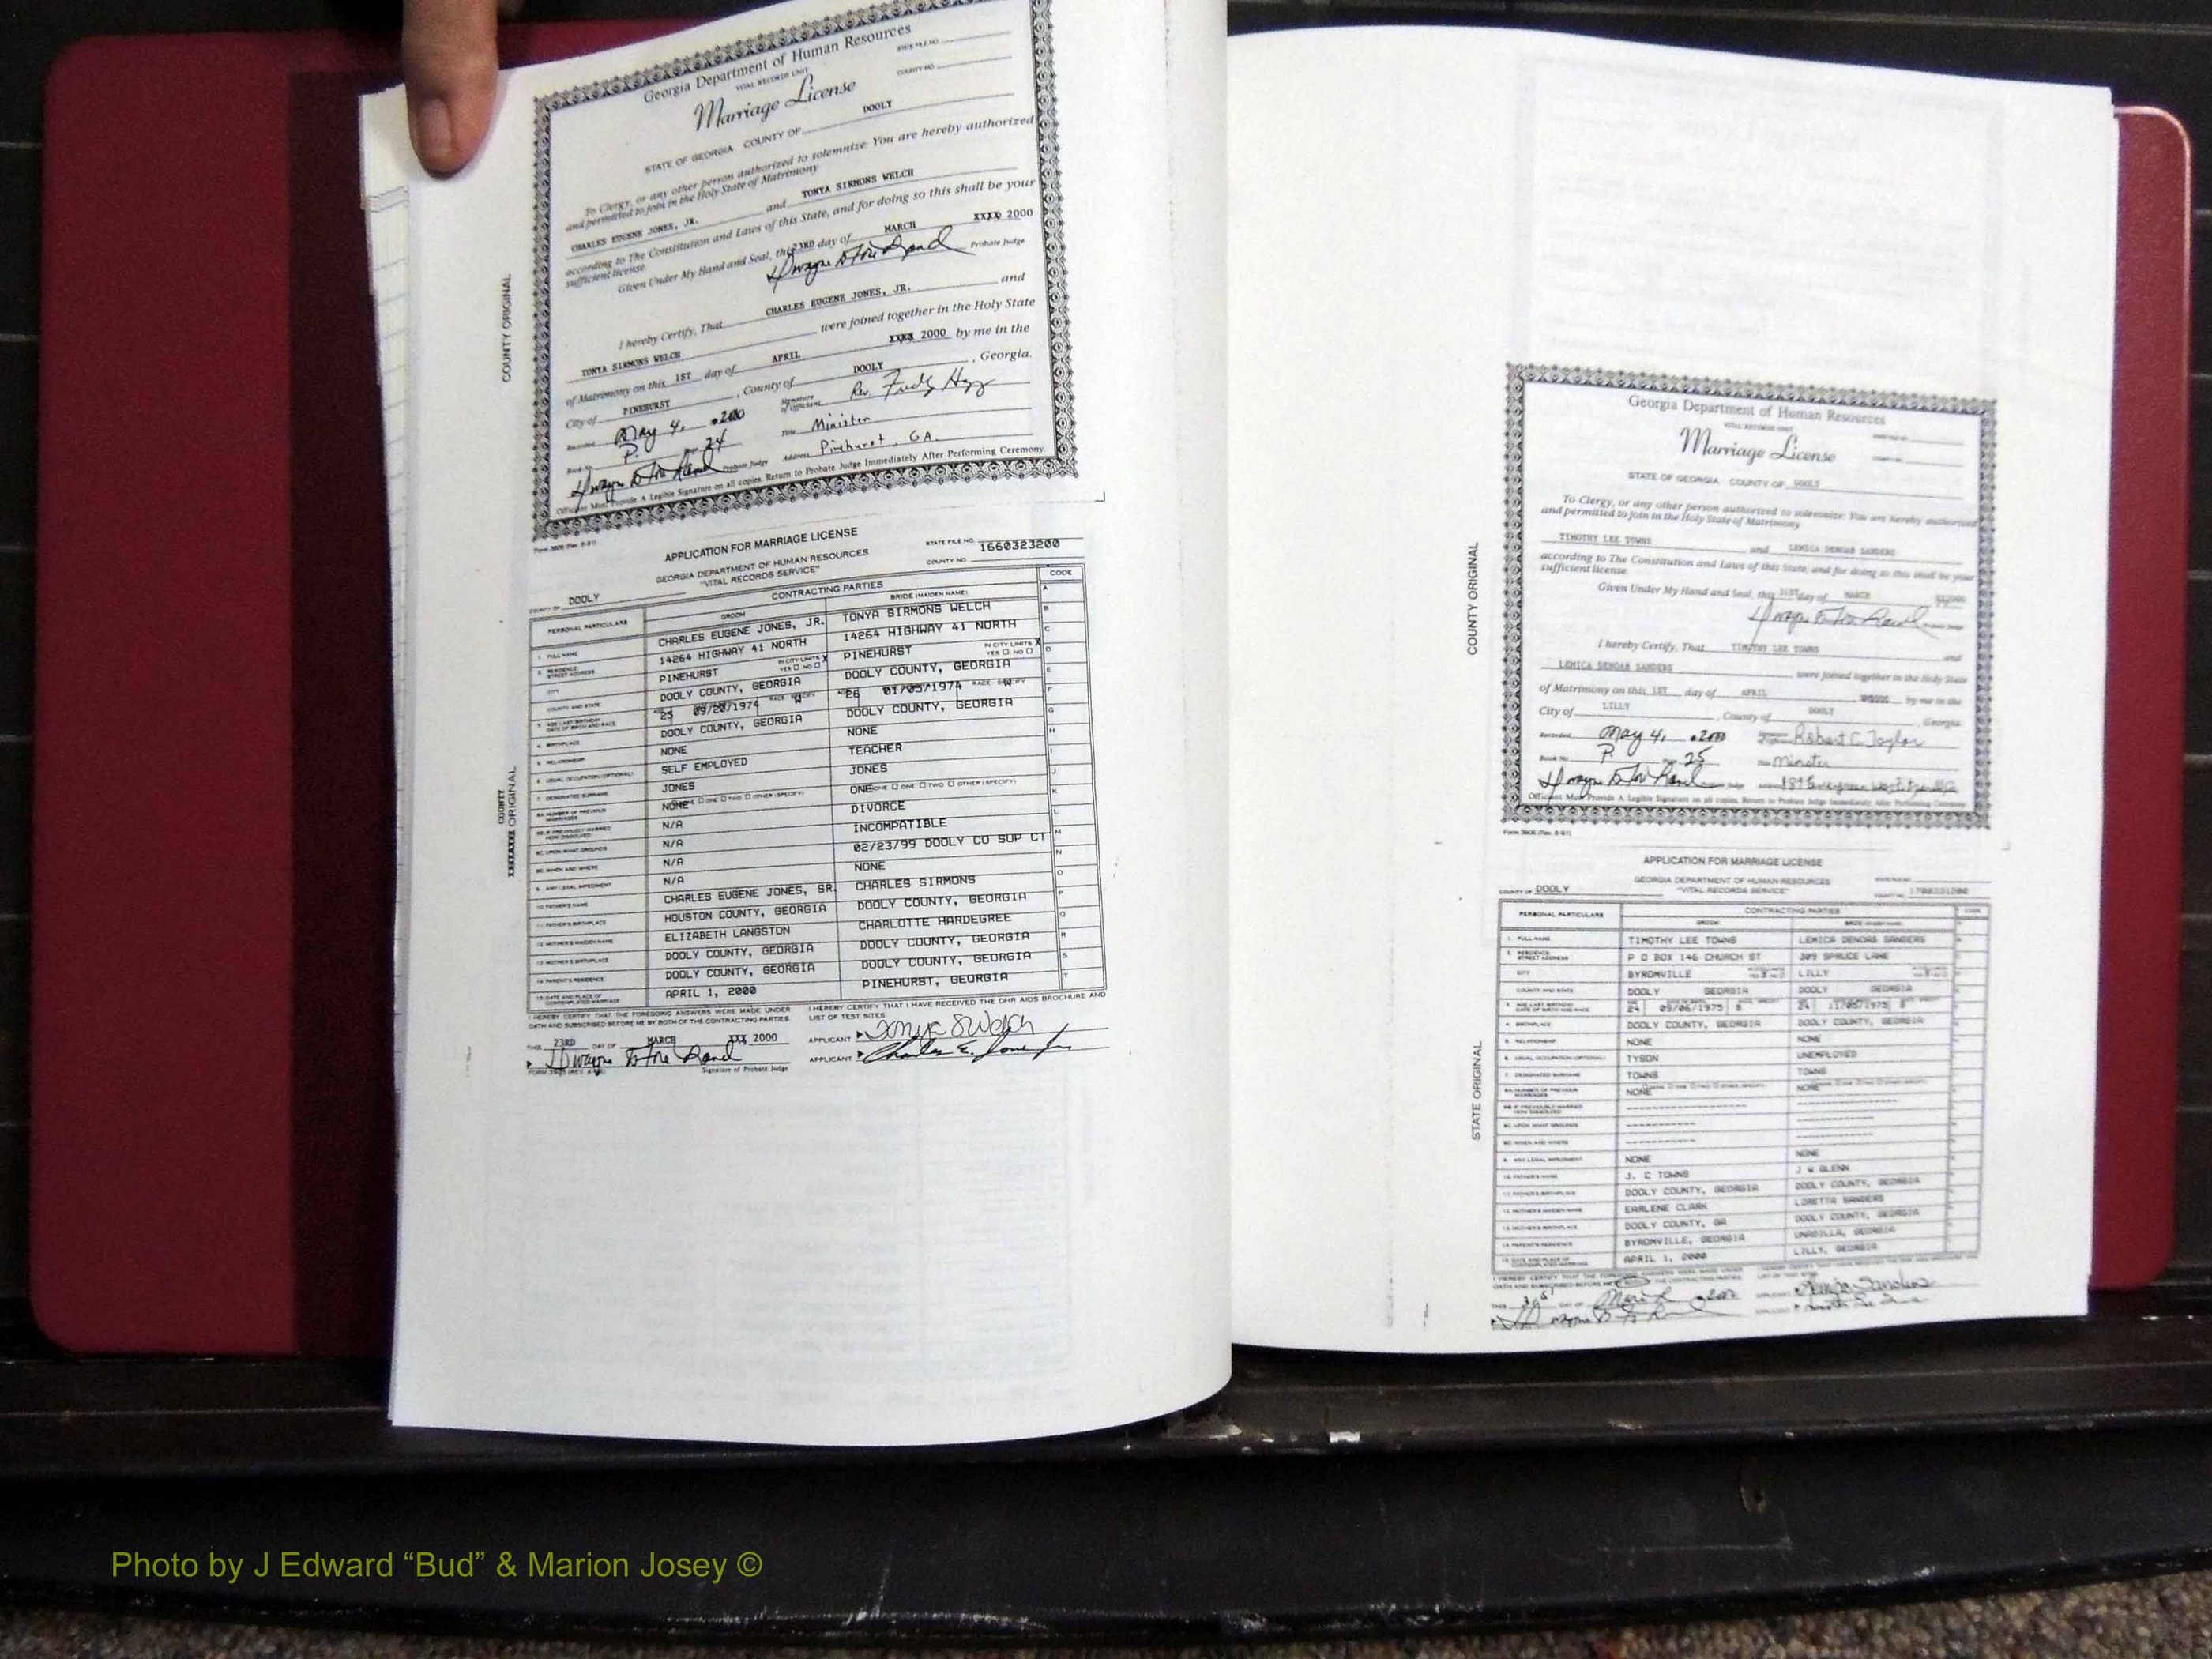 Georgia Department of Human Resources
VITAL RECORDS UNIT
STATE FILE NO.
COUNTY NO.
Marriage License
STATE OF GEORGIA COUNTY OF DOOLY
To Clergy, or any other person authorized to solemnize: You are hereby authorized
and permitted to join in the Holy State of Matrimony
CHARLES EUGENE JONES, JR. and TONYA SIRMONS WELCH
according to The Constitution and Laws of this State, and for doing so this shall be your
sufficient license.
Given Under My Hand and Seal, this 23RD day of MARCH XXXX 2000
Probate Judge
I hereby Certify, That CHARLES EUGENE JONES, JR. and
TONYA SIRMONS WELCH were joined together in the Holy State
of Matrimony on this 1ST day of APRIL XXXX 2000 by me in the
City of PINEHURST, County of DOOLY, Georgia.
Recorded May 4, 2000 Signature of Officiant Rev.
Book No. P. Page 24 Title Minister
Probate Judge Address Pinehurst, GA.
Officiant Must Provide A Legible Signature on all copies. Return to Probate Judge Immediately After Performing Ceremony.
COUNTY ORIGINAL
Form 3906 (Rev. 8-91)
APPLICATION FOR MARRIAGE LICENSE
GEORGIA DEPARTMENT OF HUMAN RESOURCES
"VITAL RECORDS SERVICE"
STATE FILE NO. 1660323200
COUNTY NO.
COUNTY OF DOOLY
PERSONAL PARTICULARS CONTRACTING PARTIES CODE
GROOM BRIDE (MAIDEN NAME)
1. FULL NAME CHARLES EUGENE JONES, JR. TONYA SIRMONS WELCH
2. RESIDENCE STREET ADDRESS 14264 HIGHWAY 41 NORTH 14264 HIGHWAY 41 NORTH
CITY PINEHURST IN CITY LIMITS YES NO X PINEHURST IN CITY LIMITS YES NO X
COUNTY AND STATE DOOLY COUNTY, GEORGIA DOOLY COUNTY, GEORGIA
3. AGE LAST BIRTHDAY DATE OF BIRTH AND RACE 25 09/20/1974 W 26 01/05/1974 W
4. BIRTHPLACE DOOLY COUNTY, GEORGIA DOOLY COUNTY, GEORGIA
5. RELATIONSHIP NONE NONE
6. USUAL OCCUPATION (OPTIONAL) SELF EMPLOYED TEACHER
7. DESIGNATED SURNAME JONES JONES
8A NUMBER OF PREVIOUS MARRIAGES NONE ONE
8B IF PREVIOUSLY MARRIED HOW DISSOLVED N/A DIVORCE
8C UPON WHAT GROUNDS N/A INCOMPATIBLE
8D WHEN AND WHERE N/A 02/23/99 DOOLY CO SUP CT
9. ANY LEGAL IMPEDIMENT N/A NONE
10 FATHER'S NAME CHARLES EUGENE JONES, SR. CHARLES SIRMONS
11 FATHER'S BIRTHPLACE HOUSTON COUNTY, GEORGIA DOOLY COUNTY, GEORGIA
12 MOTHER'S MAIDEN NAME ELIZABETH LANGSTON CHARLOTTE HARDEGREE
13 MOTHER'S BIRTHPLACE DOOLY COUNTY, GEORGIA DOOLY COUNTY, GEORGIA
14 PARENT'S RESIDENCE DOOLY COUNTY, GEORGIA DOOLY COUNTY, GEORGIA
15 DATE AND PLACE OF CONTEMPLATED MARRIAGE APRIL 1, 2000 PINEHURST, GEORGIA
I HEREBY CERTIFY THAT THE FOREGOING ANSWERS WERE MADE UNDER
OATH AND SUBSCRIBED BEFORE ME BY BOTH OF THE CONTRACTING PARTIES.
I HEREBY CERTIFY THAT I HAVE RECEIVED THE DHR AIDS BROCHURE AND
LIST OF TEST SITES
THIS 23RD DAY OF MARCH XXX 2000
APPLICANT Tonya S Welch
APPLICANT Charles E. Jones Jr
Signature of Probate Judge
COUNTY
ORIGINAL
Georgia Department of Human Resources
VITAL RECORDS UNIT
Marriage License
STATE OF GEORGIA COUNTY OF DOOLY
To Clergy, or any other person authorized to solemnize: You are hereby authorized
and permitted to join in the Holy State of Matrimony
TIMOTHY LEE TOWNS and LEMICA DENOAS SANDERS
according to The Constitution and Laws of this State, and for doing so this shall be your
sufficient license.
Given Under My Hand and Seal, this 31ST day of MARCH
I hereby Certify, That TIMOTHY LEE TOWNS and
LEMICA DENOAS SANDERS were joined together in the Holy State
of Matrimony on this 1ST day of APRIL by me in the
City of LILLY, County of DOOLY, Georgia
Recorded May 4, 2000 Robert C. Taylor
Book No. P. 25 Title Minister
Officiant Must Provide A Legible Signature on all copies. Return to Probate Judge Immediately After Performing Ceremony
COUNTY ORIGINAL
Form 3906 (Rev. 8-91)
APPLICATION FOR MARRIAGE LICENSE
GEORGIA DEPARTMENT OF HUMAN RESOURCES
"VITAL RECORDS SERVICE"
COUNTY OF DOOLY
PERSONAL PARTICULARS CONTRACTING PARTIES
GROOM BRIDE (MAIDEN NAME)
1. FULL NAME TIMOTHY LEE TOWNS LEMICA DENOAS SANDERS
2. RESIDENCE STREET ADDRESS P O BOX 146 CHURCH ST 309 SPRUCE LANE
CITY BYROMVILLE LILLY
COUNTY AND STATE DOOLY GEORGIA DOOLY GEORGIA
24 09/06/1975 B 24 11/05/1975 B
4. BIRTHPLACE DOOLY COUNTY, GEORGIA DOOLY COUNTY, GEORGIA
5. RELATIONSHIP NONE NONE
6. USUAL OCCUPATION (OPTIONAL) TYSON UNEMPLOYED
7. DESIGNATED SURNAME TOWNS TOWNS
NONE NONE
9. ANY LEGAL IMPEDIMENT NONE NONE
10 FATHER'S NAME J. C TOWNS J W GLENN
11 FATHER'S BIRTHPLACE DOOLY COUNTY, GEORGIA DOOLY COUNTY, GEORGIA
12 MOTHER'S MAIDEN NAME EARLENE CLARK LORETTA SANDERS
13 MOTHER'S BIRTHPLACE DOOLY COUNTY, GA DOOLY COUNTY, GEORGIA
14 PARENT'S RESIDENCE BYROMVILLE, GEORGIA UNADILLA, GEORGIA
15 DATE AND PLACE OF CONTEMPLATED MARRIAGE APRIL 1, 2000 LILLY, GEORGIA
I HEREBY CERTIFY THAT THE FOREGOING ANSWERS WERE MADE UNDER
OATH AND SUBSCRIBED BEFORE ME THE CONTRACTING PARTIES
STATE ORIGINAL
Photo by J Edward “Bud” & Marion Josey ©